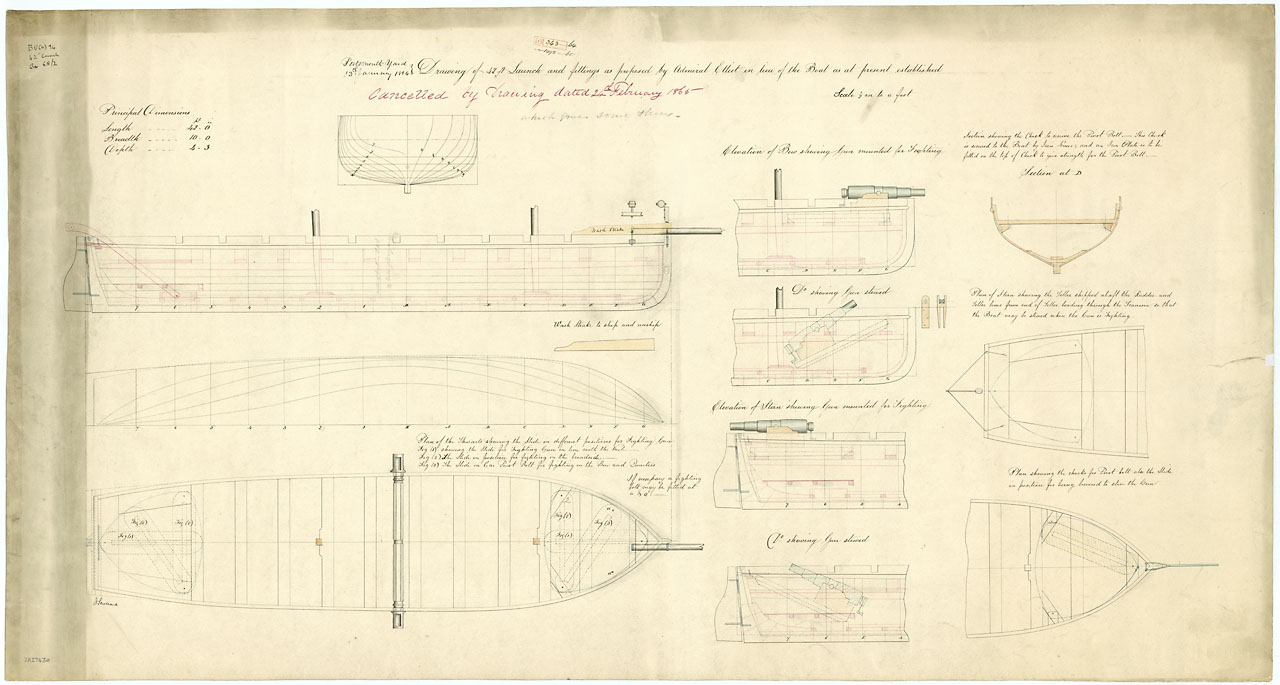 363 64
Portsmouth Yard
13th January 1864
Drawing of 42 ft Launch and fittings as proposed by Admiral Elliot in lieu of the Boat as at present established
Cancelled by Drawing dated 24th February 1865
which gives some
Scale ½ in to a foot
Principal Dimensions
Length 42 - 0
Breadth 10 - 0
Depth 4 - 3
Elevation of Bow shewing Gun mounted for Fighting
Section shewing the Chock to receive the Pivot Bolt. This Chock
is secured to the Boat by Iron Knees, and an Iron Plate is to be
fitted on the top of Chock to give strength for the Pivot Bolt.
Section at D
Wash Strake
Do shewing Gun stowed
Plan of Stern shewing the Tiller shipped abaft the Rudder and
Tiller lines from end of Tiller leading through the Transom so that
the Boat may be steered when the Gun is Fighting
Wash Strake to ship and unship
Elevation of Stern shewing Gun mounted for Fighting
Plan of the Thwarts shewing the Slide in different positions for Fighting Gun
Fig (1) shewing the Slide for Fighting Gun in line with the keel
Fig (2) The Slide in position for fighting on the broadside
Fig (3) The Slide on Rear Pivot Bolt for fighting on the Bow and Quarters
If necessary a fighting
bolt may be fitted at
Plan shewing the chocks for Pivot bolt also the Slide
in position for being lowered to stow the Gun
Fig (3)
Fig (2)
Fig (1)
Fig (2)
Fig (3)
Fig (1)
Do shewing Gun stowed